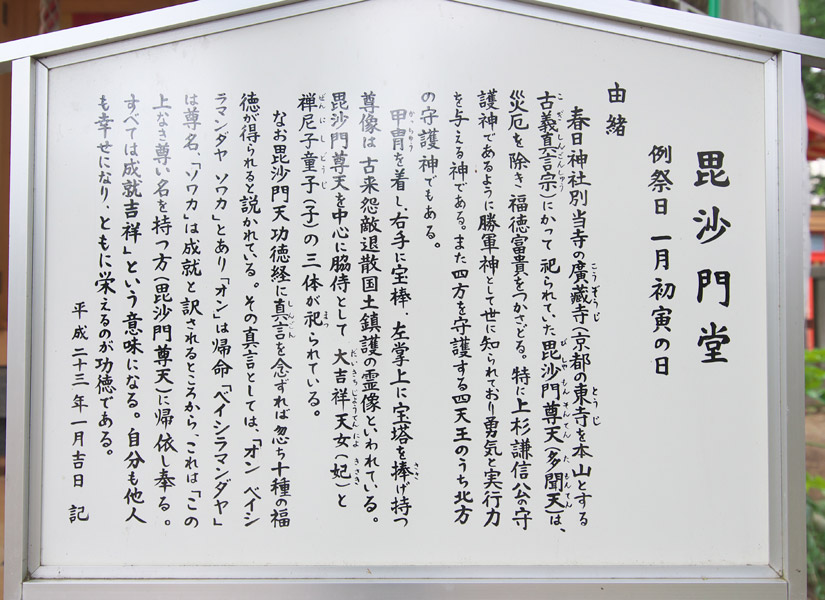 毘沙門堂
例祭日 一月初寅の日
由緒
春日神社別当寺の廣藏寺(京都の東寺を本山とする
古義真言宗)にかつて祀られていた毘沙門尊天(多聞天)は、
災厄を除き福徳富貴をつかさどる。特に上杉謙信公の守
護神であるように勝軍神として世に知られており勇気と実行力
を与える神である。また四方を守護する四天王のうち北方
の守護神でもある。
甲冑を着し、右手に宝棒、左掌上に宝塔を捧げ持つ
尊像は古来怨敵退散国土鎮護の霊像といわれている。
毘沙門尊天を中心に脇侍として大吉祥天女(妃)と
禅尼子童子(子)の三体が祀られている。
なお毘沙門天功徳経に真言を念ずれば忽ち十種の福
徳が得られると説かれている。その真言としては、「オン ベイシ
ラマンダヤ ソワカ」とあり「オン」は帰命「ベイシラマンダヤ」
は尊名、「ソワカ」は成就と訳されるところから、これは「この
上なき尊い名を持つ方(毘沙門尊天)に帰依し奉る。
すべては成就吉祥」という意味になる。自分も他人
も幸せになり、ともに栄えるのが功徳である。
平成二十三年一月吉日 記